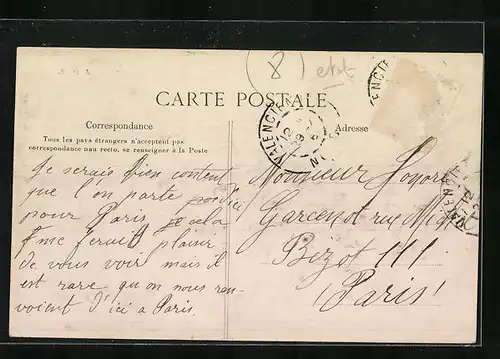 (8) etat
CARTE POSTALE
Correspondance
Tous les pays étrangers n'acceptent pas
correspondance nau recto, se renseigner à la Poste
Adresse
VALENCIE
Je serais bien content
que l'on parte
pour Paris
me ferait plaisir
de vous voir mais il
est rare qu on nous ren-
voient d'ici a Paris.
Monsieur
Garcenot rue
Bizot 111
Paris